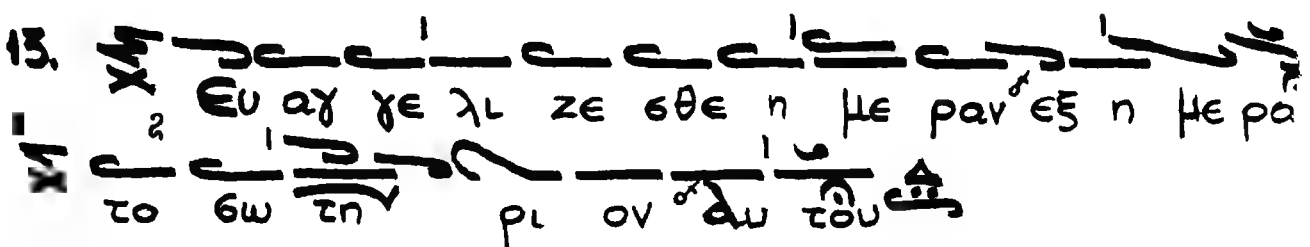 13. Ευ αγ γε λι ζε σθε η με ραν εξ η με ρα
το σω τη ρι ον αυ του